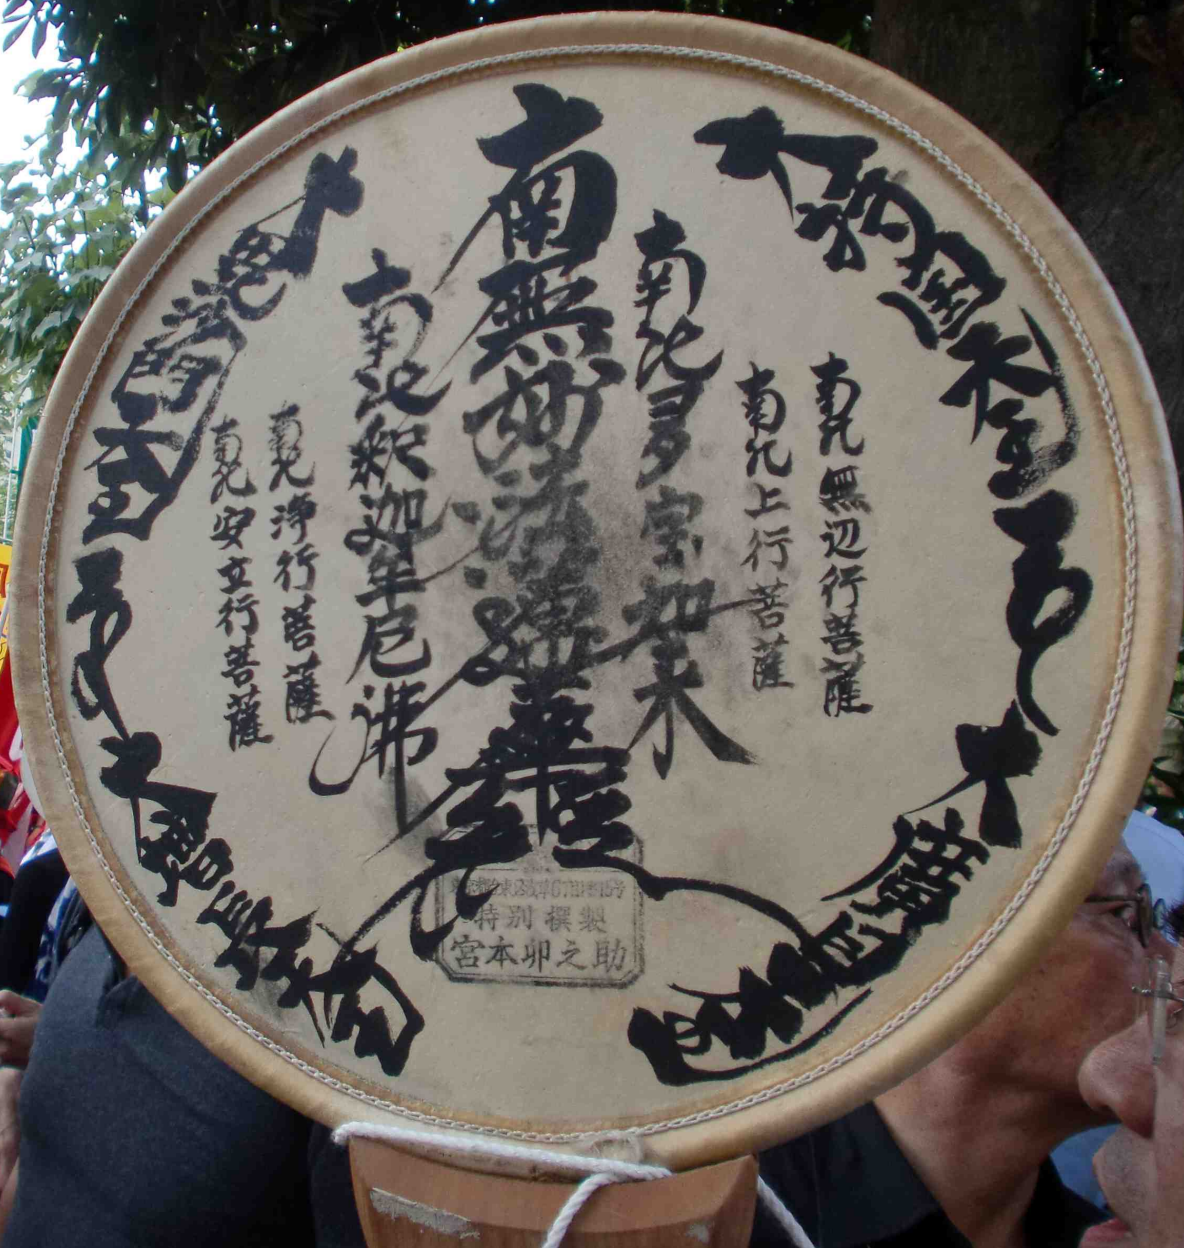 大持國天王
大廣目天王
南无無辺行菩薩
南无上行菩薩
南无多宝如来
南無妙法蓮華經
南无釈迦牟尼佛
南无浄行菩薩
南无安立行菩薩
大毘沙門天王
大増長天王
特別撰製
宮本卯之助